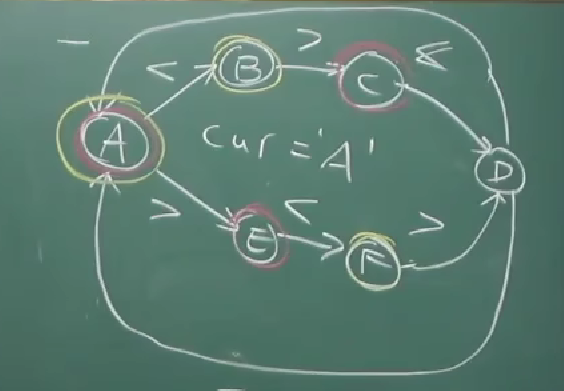 -
< B > C <
A cur = 'A' D
> E < F >